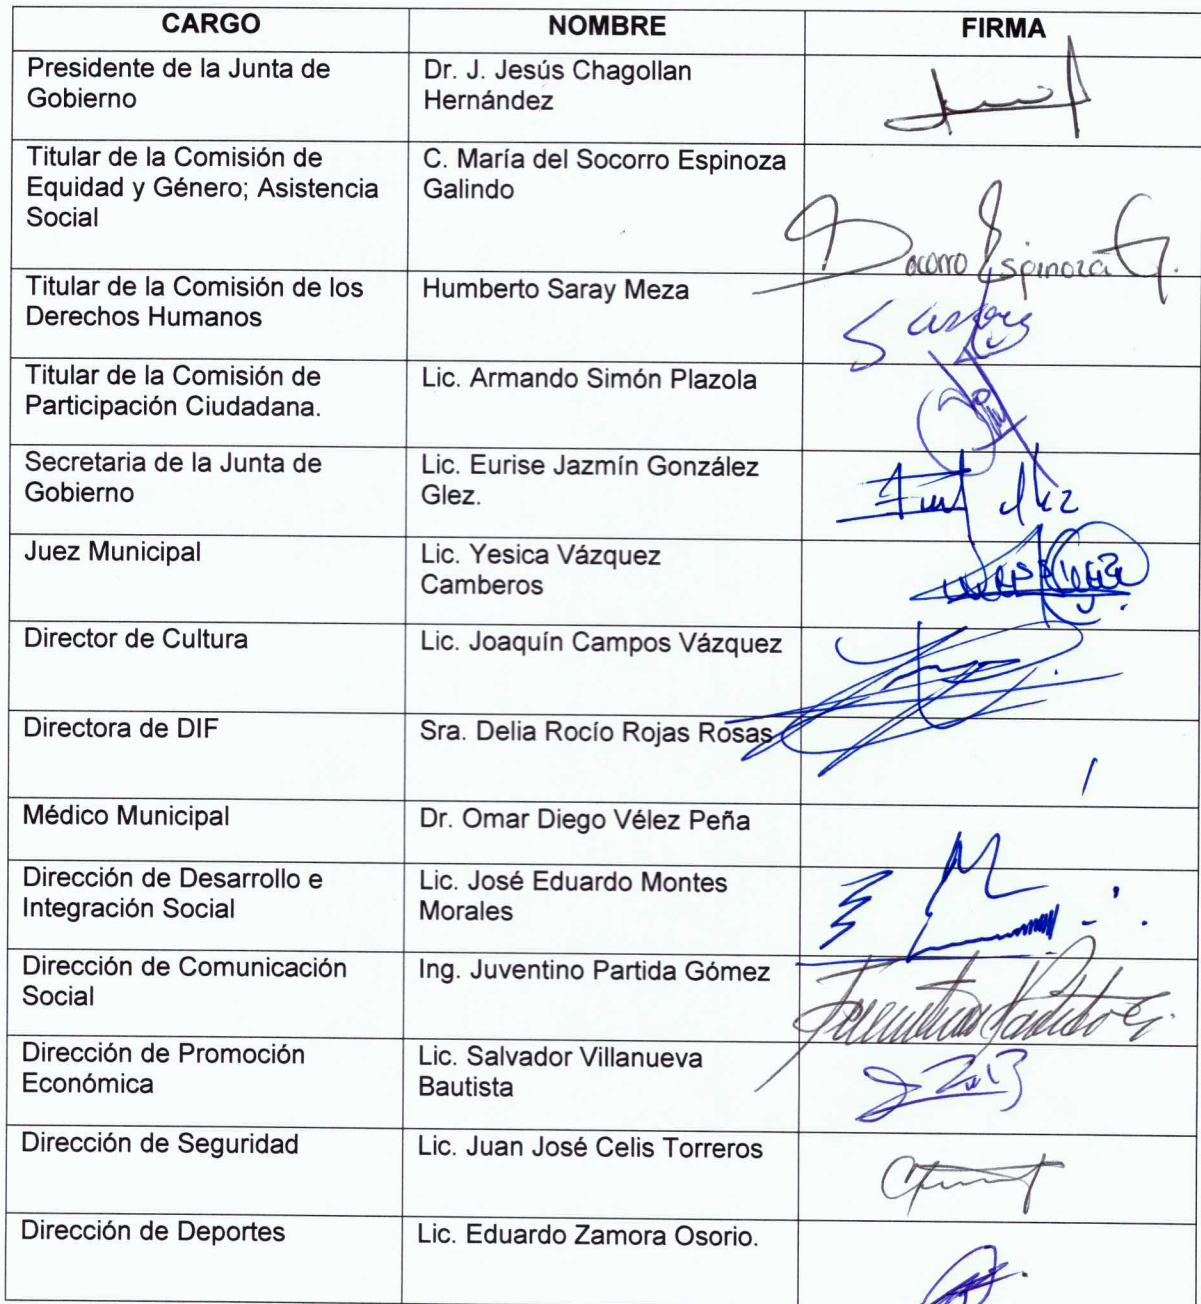 CARGO NOMBRE FIRMA
Presidente de la Junta de
Gobierno
Dr. J. Jesús Chagollan
Hernández
Titular de la Comisión de
Equidad y Género; Asistencia
Social
C. María del Socorro Espinoza
Galindo
Socorro Espinoza G.
Titular de la Comisión de los
Derechos Humanos
Humberto Saray Meza
Titular de la Comisión de
Participación Ciudadana.
Lic. Armando Simón Plazola
Secretaria de la Junta de
Gobierno
Lic. Eurise Jazmín González
Glez.
Juez Municipal
Lic. Yesica Vázquez
Camberos
Director de Cultura
Lic. Joaquín Campos Vázquez
Directora de DIF
Sra. Delia Rocío Rojas Rosas
Médico Municipal
Dr. Omar Diego Vélez Peña
Dirección de Desarrollo e
Integración Social
Lic. José Eduardo Montes
Morales
Dirección de Comunicación
Social
Ing. Juventino Partida Gómez
Juventino Partida G.
Dirección de Promoción
Económica
Lic. Salvador Villanueva
Bautista
Dirección de Seguridad
Lic. Juan José Celis Torreros
Dirección de Deportes
Lic. Eduardo Zamora Osorio.